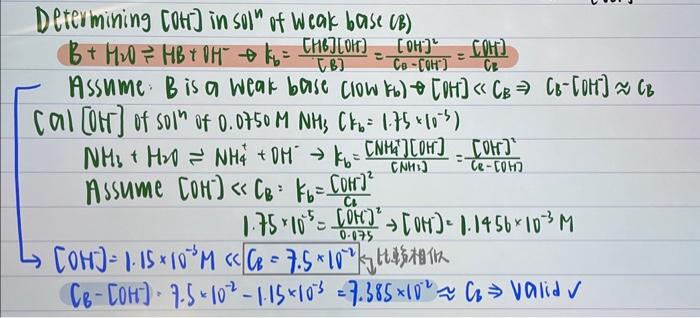 Determining [OH⁻] in solⁿ of weak base (B)
B + H₂O ⇌ HB + OH⁻ → kb = [HB][OH] / [B] = [OH⁻]² / CB - [OH⁻] = [OH⁻] / CB
Assume: B is a weak base (low kb) → [OH⁻] << CB ⇒ CB - [OH⁻] ≈ CB
Cal [OH⁻] of solⁿ of 0.0750 M NH₃ (kb = 1.75 × 10⁻⁵)
NH₃ + H₂O ⇌ NH₄⁺ + OH⁻ → kb = [NH₄⁺][OH⁻] / [NH₃] = [OH⁻]² / CB - [OH]
Assume [OH⁻] << CB : kb = [OH⁻]² / CB
1.75 × 10⁻⁵ = [OH⁻]² / 0.075 → [OH⁻] = 1.1456 × 10⁻³ M
[OH⁻] = 1.15 × 10⁻³ M << CB = 7.5 × 10⁻² 比較相似
CB - [OH⁻] = 7.5 × 10⁻² - 1.15 × 10⁻³ = 7.385 × 10⁻² ≈ CB ⇒ valid ✓